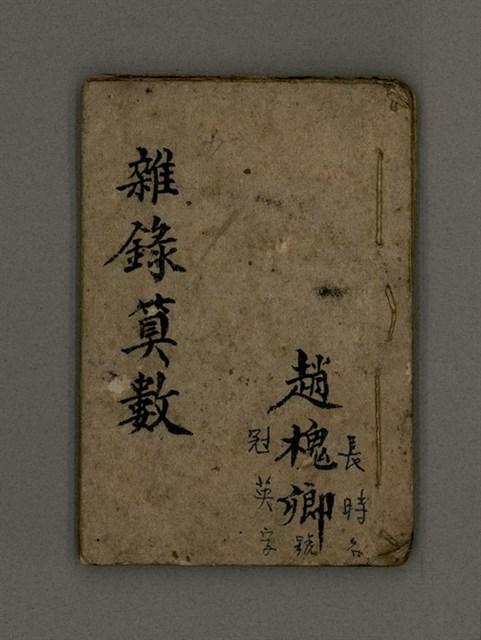 長時名
趙槐卿號
冠英字
雜錄算數